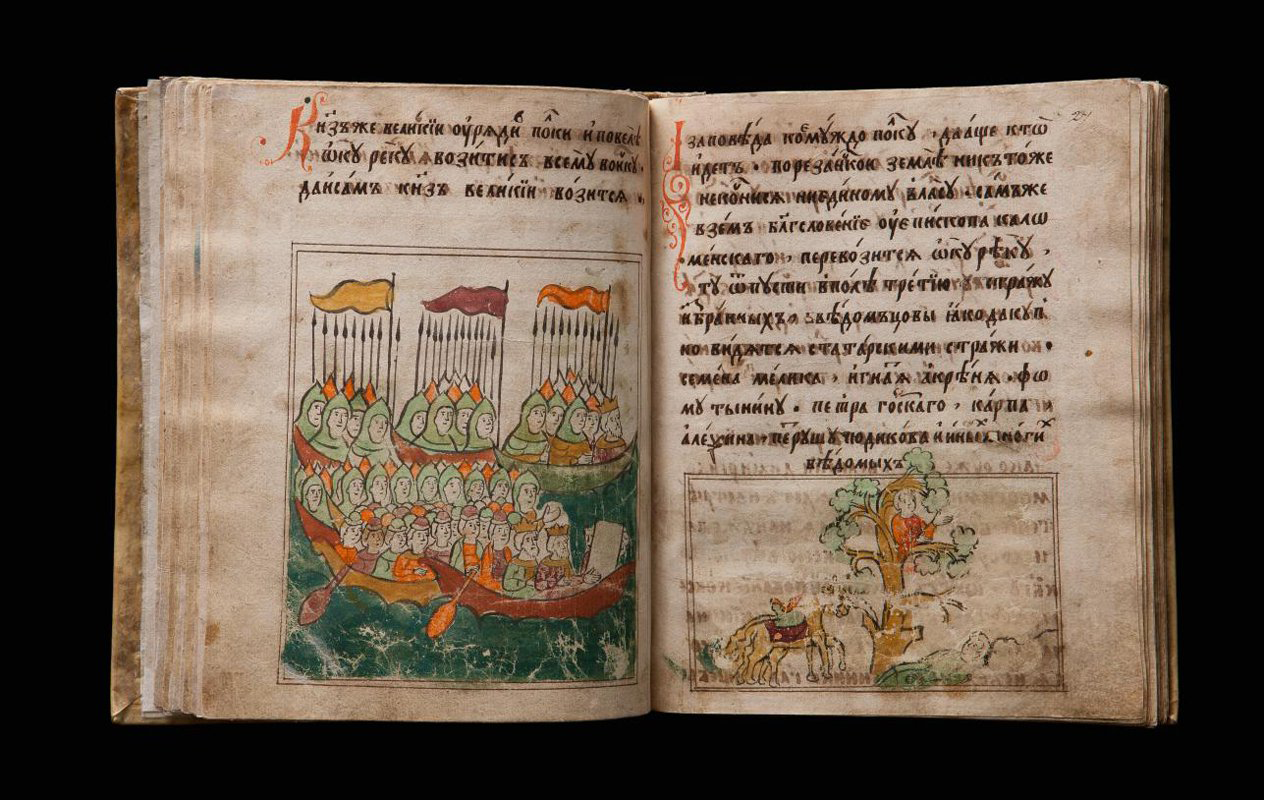 Кн҃зъ же вели́кїи ѹ҆ряди̏ по́лки и҆ повелѣ̀
ѡ҆кꙋ̀ рекꙋ̀ возитисѧ̀ всемꙋ̀ во́искꙋ .
да и҆ са́мъ кн҃зь вели́кїи во́зится .
І заповѣ́да комꙋ́ждо по́лкꙋ . да а҆́ще кто̀
и҆́детъ . по реза́нской землѣ̀ никъто́же
не ко́сни́ся ни є҆ди́номꙋ вла́сꙋ . са́мъ же
взе́мъ бл҃гслове́нїе ѹ҆ є҆пи́скопа кало
ме́нскаго , перевозится ѡ҆кꙋ̀ рѣ́кꙋ ,
тꙋ̀ ѿпꙋстѝ в по́ле тре́тїю стра́жꙋ
и҆́бранныхъ вѣ́домъцовы ꙗ҆́ко да кꙋ́п
но ви́дятся с тата́рьскими стра́жи .
семе́на ме́лика , и҆гна́тїѧ кре́нѧ . ѳо
мꙋ ты́нинꙋ . петра̀ го́рскаго , ка́рпа
але́ѯина , перꙋ́шꙋ чюдико́ва и҆ и҆ны́хъ мно́ги
вѣ́домыхъ